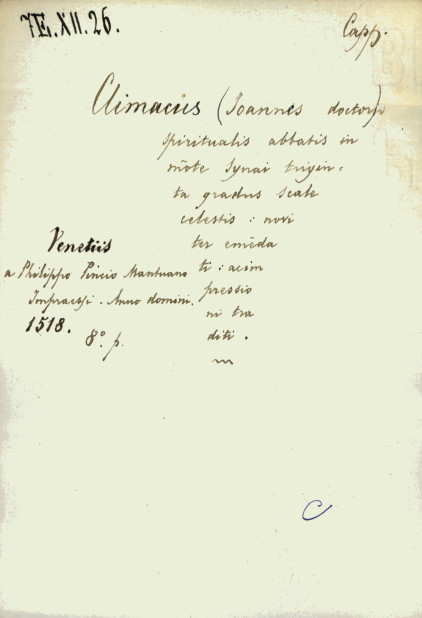 7E.XII.26.
Capp.
Climacus (Joannes doctor)
spiritualis abbatis in
mōte Synai trigin-
ta gradus scale
celestis : novi
ter emēda
ti : acim
pressio
ni tra
diti .
Venetiis
a Philippo Pincio Mantuano
Impraessi . Anno domini.
1518.
8º. p.
C